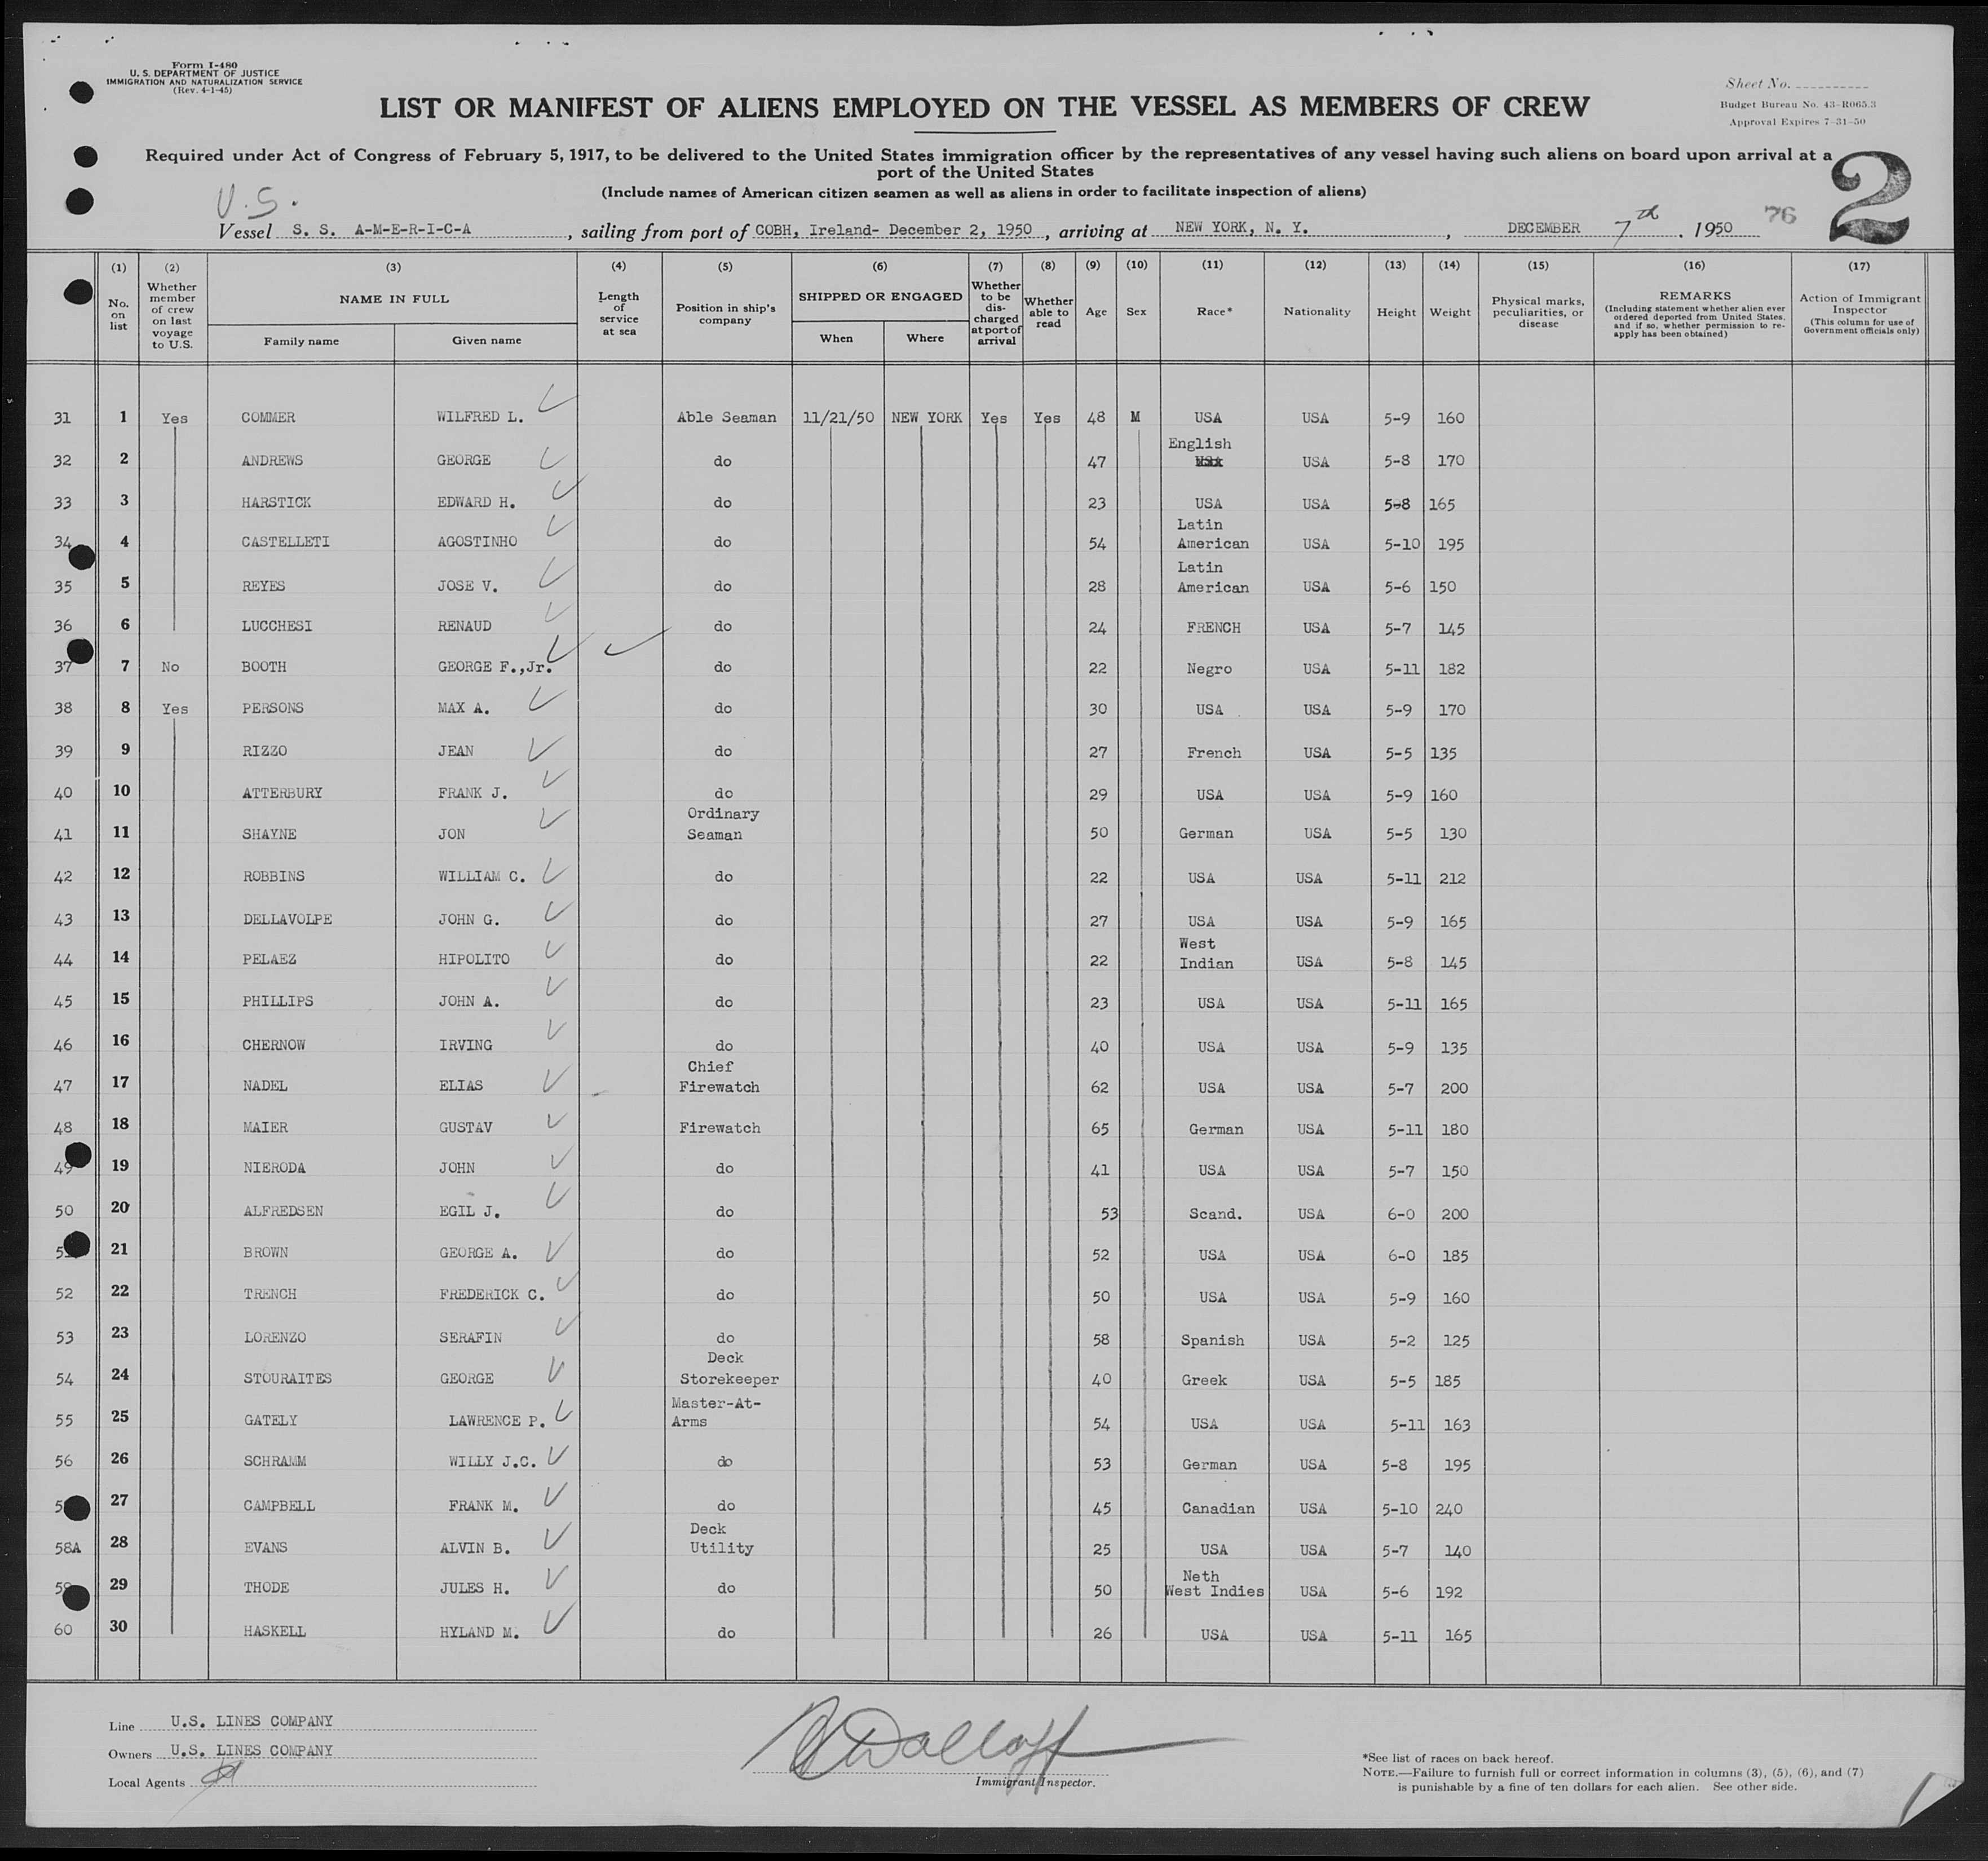 Form I-480
U. S. DEPARTMENT OF JUSTICE
IMMIGRATION AND NATURALIZATION SERVICE
(Rev. 4-1-45)
Sheet No.
Budget Bureau No. 43-R065.3
Approval Expires 7-31-50
LIST OR MANIFEST OF ALIENS EMPLOYED ON THE VESSEL AS MEMBERS OF CREW
Required under Act of Congress of February 5, 1917, to be delivered to the United States immigration officer by the representatives of any vessel having such aliens on board upon arrival at a
port of the United States
(Include names of American citizen seamen as well as aliens in order to facilitate inspection of aliens)
2
U.S.
Vessel S. S. A-M-E-R-I-C-A, sailing from port of COBH, Ireland- December 2, 1950, arriving at NEW YORK, N. Y., DECEMBER 7th, 1950 76
(1) No. on list
(2) Whether member of crew on last voyage to U.S.
(3) NAME IN FULL Family name Given name
(4) Length of service at sea
(5) Position in ship's company
(6) SHIPPED OR ENGAGED When Where
(7) Whether to be discharged at port of arrival
(8) Whether able to read
(9) Age
(10) Sex
(11) Race*
(12) Nationality
(13) Height
(14) Weight
(15) Physical marks, peculiarities, or disease
(16) REMARKS (Including statement whether alien ever ordered deported from United States, and if so, whether permission to re-apply has been obtained)
(17) Action of Immigrant Inspector (This column for use of Government officials only)
31 1 Yes COMMER WILFRED L. Able Seaman 11/21/50 NEW YORK Yes Yes 48 M USA USA 5-9 160
32 2 ANDREWS GEORGE do 47 English USA 5-8 170
33 3 HARSTICK EDWARD H. do 23 USA USA 5-8 165
34 4 CASTELLETI AGOSTINHO do 54 Latin American USA 5-10 195
35 5 REYES JOSE V. do 28 Latin American USA 5-6 150
36 6 LUCCHESI RENAUD do 24 FRENCH USA 5-7 145
37 7 No BOOTH GEORGE F.,Jr. do 22 Negro USA 5-11 182
38 8 Yes PERSONS MAX A. do 30 USA USA 5-9 170
39 9 RIZZO JEAN do 27 French USA 5-5 135
40 10 ATTERBURY FRANK J. do 29 USA USA 5-9 160
41 11 SHAYNE JON Ordinary Seaman 50 German USA 5-5 130
42 12 ROBBINS WILLIAM C. do 22 USA USA 5-11 212
43 13 DELLAVOLPE JOHN G. do 27 USA USA 5-9 165
44 14 PELAEZ HIPOLITO do 22 West Indian USA 5-8 145
45 15 PHILLIPS JOHN A. do 23 USA USA 5-11 165
46 16 CHERNOW IRVING do 40 USA USA 5-9 135
47 17 NADEL ELIAS Chief Firewatch 62 USA USA 5-7 200
48 18 MAIER GUSTAV Firewatch 65 German USA 5-11 180
49 19 NIERODA JOHN do 41 USA USA 5-7 150
50 20 ALFREDSEN EGIL J. do 53 Scand. USA 6-0 200
21 BROWN GEORGE A. do 52 USA USA 6-0 185
52 22 TRENCH FREDERICK C. do 50 USA USA 5-9 160
53 23 LORENZO SERAFIN do 58 Spanish USA 5-2 125
54 24 STOURAITES GEORGE Deck Storekeeper 40 Greek USA 5-5 185
55 25 GATELY LAWRENCE P. Master-At-Arms 54 USA USA 5-11 163
56 26 SCHRAMM WILLY J.C. do 53 German USA 5-8 195
27 CAMPBELL FRANK M. do 45 Canadian USA 5-10 240
58A 28 EVANS ALVIN B. Deck Utility 25 USA USA 5-7 140
59 29 THODE JULES H. do 50 Neth West Indies USA 5-6 192
60 30 HASKELL HYLAND M. do 26 USA USA 5-11 165
Line U.S. LINES COMPANY
Owners U.S. LINES COMPANY
Local Agents
Immigrant Inspector.
*See list of races on back hereof.
NOTE.—Failure to furnish full or correct information in columns (3), (5), (6), and (7)
is punishable by a fine of ten dollars for each alien. See other side.